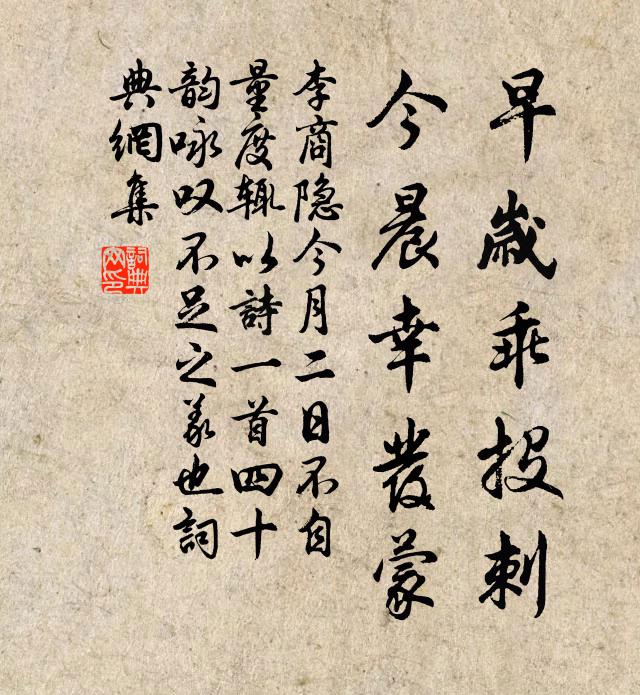 早歲乖投刺
今晨幸發蒙
李商隐今月二日不自
量度輒以詩一首四十
韵咏叹不足之義也詞
典網集
詞典